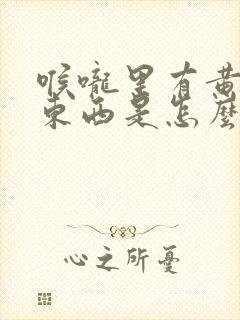 喉嚨里有黃
東西是怎麽
心之所憂